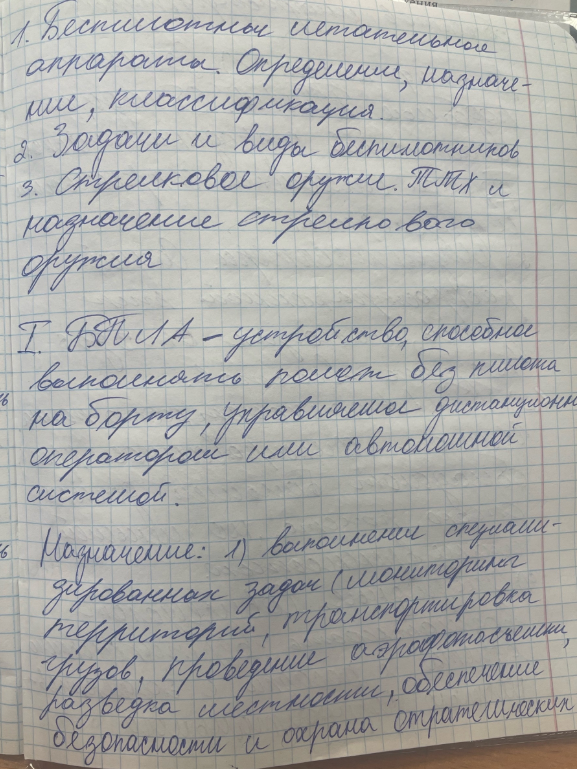 1. Беспилотные летательные
аппараты. Определение, назначе-
ние, классификация.
2. Задачи и виды беспилотников
3. Стрелковое оружие. ТТХ и
назначение стрелкового
оружия
I. БПЛА – устройство, способное
выполнять полет без пилота
на борту, управляемое дистанционн
оператором или автономной
системой.
Назначение: 1) выполнение специали-
зированных задач (мониторинг
территорий, транспортировка
грузов, проведение аэрофотосъемки,
разведка местности, обеспечение
безопасности и охрана стратегических